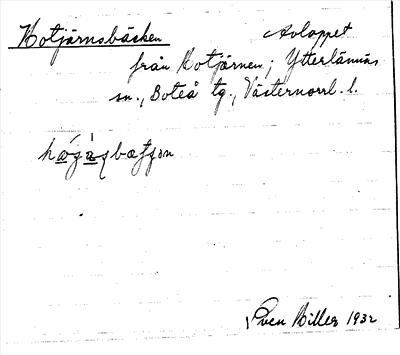 Kotjärnsbäcken Avloppet
från Kotjärnen; Ytterlännäs
sn., Boteå tg., Västernorrl. l.
Sven Biller 1932